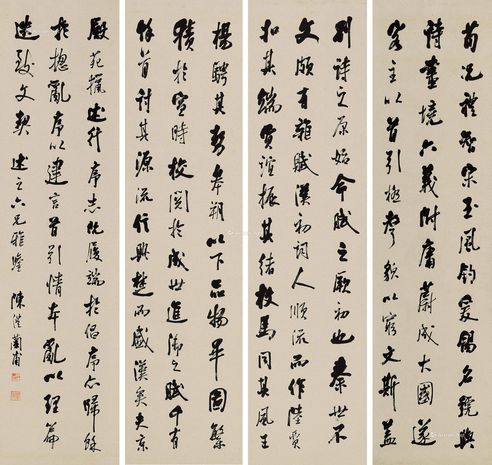 荀況禮智宋玉風釣爰錫名號與
詩畫境六義附庸蔚成大國遂
客主以首引極聲貌以窮文斯蓋
別詩之原始命賦之厥初也秦世不
文頗有雜賦漢初詞人順流而作陸賈
扣其端賈誼振其緒枚馬同其風王
楊騁其勢皋朔以下品物畢圖繁
積於宣時校閱於成世進御之賦千有
餘首討其源流信興楚而盛漢矣夫京
殿苑獵述行序志既履端於倡序亦歸餘
於總亂序以建言首引情本亂以理篇
迭致文契 述之六兄雅鑒 陳澧蘭甫